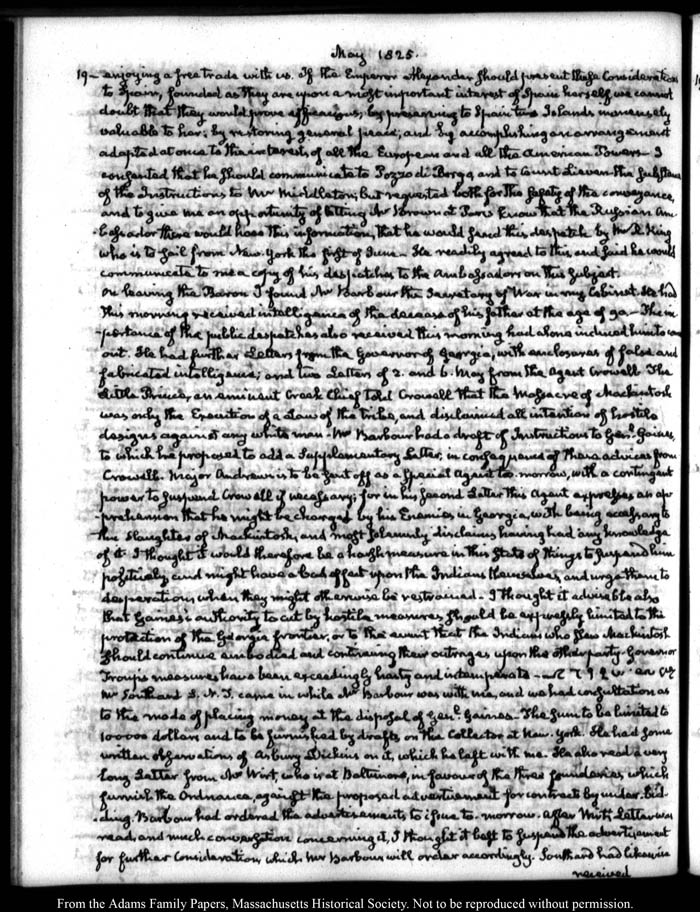 May 1825.
19— enjoying a free trade with us. If the Emperor Alexander should present these Considerations
to Spain, founded as they are upon a most important interest of Spain herself we cannot
doubt that they would prove efficacious, by preserving to Spain two Islands immensely
valuable to her; by restoring general peace; and by accomplishing an arrangement
adapted at once to the interests of all the European and all the American Powers— I
consented that he should communicate to Pozzo di Borgo, and to Count Lieven the substance
of the Instructions to Mr Middleton; but requested both for the safety of the conveyance,
and to give me an opportunity of letting Mr Brown at Paris know that the Russian Am-
-bassador there would have this information, that he would send this despatch by Mr R. King
who is to sail from New-York the first of June— He readily agreed to this and said he would
communicate to me a copy of his despatches to the Ambassadors on this subject.
On leaving the Baron I found Mr Barbour the Secretary of War in my Cabinet. He had
this morning received intelligence of the decease of his father at the age of 90— The im-
-portance of the public despatches also received this morning had alone induced him to come
out. He had further Letters from the Governor of Georgia, with enclosures of false and
fabricated intelligence; and two Letters of 2. and 6. May from the Agent Crowell. The
Little Prince, an eminent Creek Chief told Crowell that the Massacre of Mackintosh
was only the Execution of a Law of the tribe, and disclaimed all intention of hostile
designs against any white man— Mr Barbour had a draft of Instructions to Genl. Gaines,
to which he proposed to add a Supplementary Letter, in consequence of these advices from
Crowell. Major Andrews is to be sent off as a Special Agent to-morrow, with a contingent
power to suspend Crowell if necessary; for in his second Letter this Agent expresses an ap-
-prehension that he might be charged by his Enemies in Georgia, with being accessary to
the slaughter of Mackintosh, and most solemnly disclaims having had any knowledge
of it. I thought it would therefore be a harsh measure in this State of things to suspend him
positively and might have a bad effect upon the Indians themselves, and urge them to
desperation, when they might otherwise be restrained— I thought it advisable also
that Gaines's authority to act by hostile measures, should be expressly limited to the
protection of the Georgia frontier, or to the event that the Indians who slew Mackintosh
should continue embodied and continuing their outrages upon the other party. Governor
Troup's measures have been exceedingly hasty and intemperate—
Mr Southard S. N. J. came in while Mr Barbour was with me, and we had consultation as
to the mode of placing money at the disposal of Genl. Gaines— The sum to be limited to
100000 dollars and to be furnished by drafts, on the Collector at New-York. He had some
written observations of Asbury Dickins on it, which he left with me. He also read a very
long Letter from Mr Wirt, who is at Baltimore, in favour of the three founderies, which
furnish the Ordnance, against the proposed advertisement for contracts by under-bid-
-ding. Barbour had ordered the advertisements to issue to-morrow. After Wirt's Letter was
read, and much conversation concerning it, I thought it best to suspend the advertisement
for further Consideration, which Mr Barbour will order accordingly. Southard had likewise
received
From the Adams Family Papers, Massachusetts Historical Society. Not to be reproduced without permission.